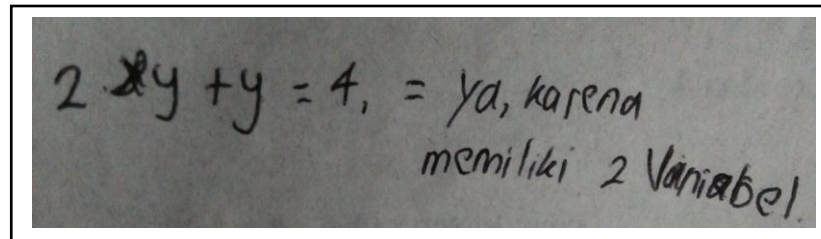 2 xy + y = 4, = ya, karena
memiliki 2 Variabel.